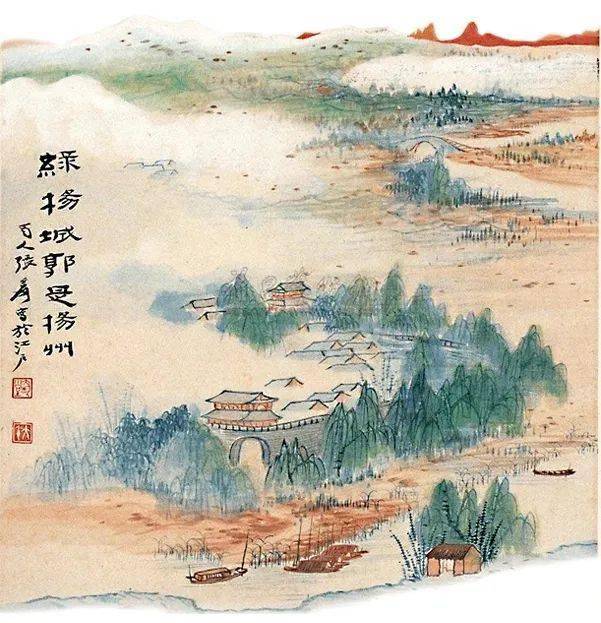 綠楊城郭是揚州
蜀人張爰寫於江戶